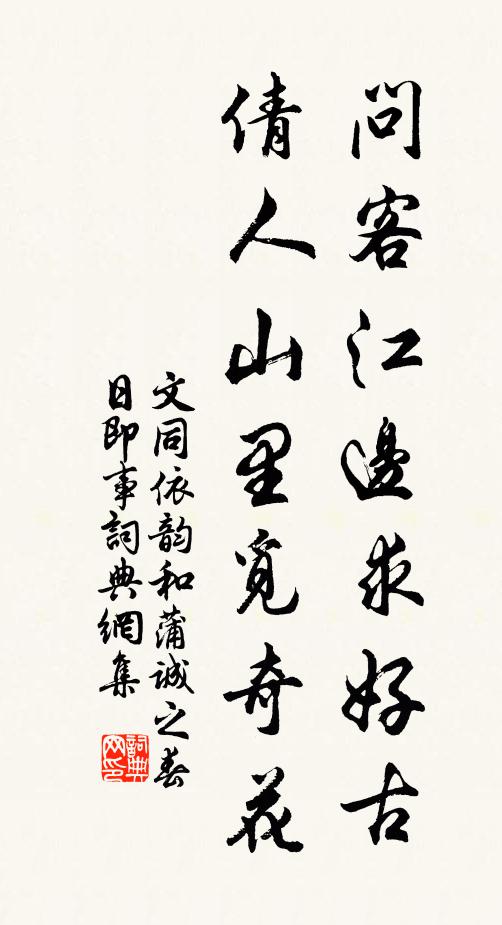 問客江邊求好古
倩人山里覓奇花
文同依韵和蒲誠之春
日即事詞典網集
詞典
网印